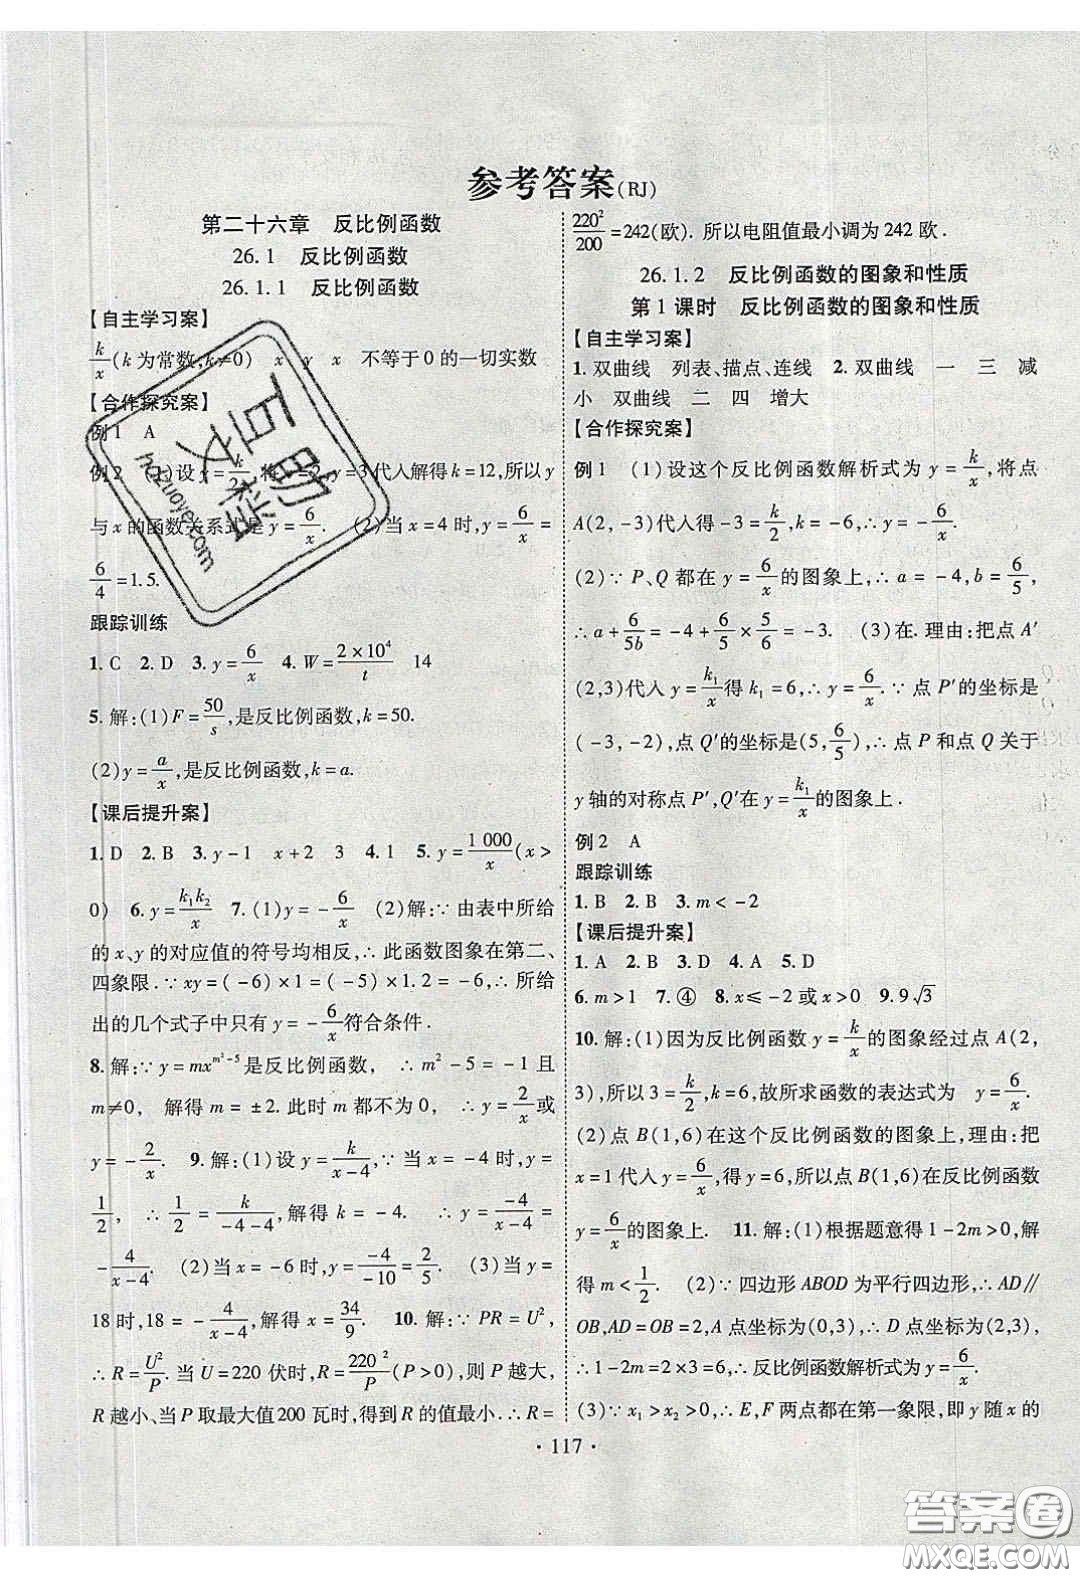 参考答案(RJ)
第二十六章 反比例函数
26.1 反比例函数
26.1.1 反比例函数
【自主学习案】
k/x(k 为常数,k≠0) x y x 不等于0的一切实数
【合作探究案】
例1 A
例2 设y=k/2 y=3代入解得k=12,所以y
与x的函数关系式是y=6/x. (2)当x=4时,y=6/x=
6/4=1.5.
跟踪训练
1. C 2. D 3. y=6/x 4. W=2×10⁴/t 14
5. 解:(1)F=50/s,是反比例函数,k=50.
(2)y=a/x,是反比例函数,k=a.
【课后提升案】
1. D 2. B 3. y-1 x+2 3 4. 1 5. y=1 000/x(x>
0) 6. y=k₁k₂/x 7. (1)y=-6/x (2)解:∵由表中所给
的x、y的对应值的符号均相反,∴此函数图象在第二、
四象限.∵xy=(-6)×1=(-5)×1.2=-6,∴所给
出的几个式子中只有y=-6/x符合条件.
8. 解:∵y=mx^(m²-5)是反比例函数, ∴m²-5=-1且
m≠0, 解得m=±2. 此时m都不为0, ∴y=2/x或
y=-2/x. 9. 解:(1)设y=k/(x-4), ∵当x=-4时,y=
1/2, ∴1/2=k/(-4-4),解得k=-4. ∴y=-4/(x-4)=
-4/(x-4). (2)当x=-6时,y=-4/-10=2/5. (3)当y=
18时,18=-4/(x-4),解得x=34/9. 10. 解:∵PR=U²,
∴R=U²/P. 当U=220伏时,R=220²/P(P>0),则P越大,
R越小、当P取最大值200瓦时,得到R的值最小.∴R=
220²/200=242(欧). 所以电阻值最小调为242欧.
26.1.2 反比例函数的图象和性质
第1课时 反比例函数的图象和性质
【自主学习案】
1. 双曲线 列表、描点、连线 2. 双曲线 一 三 减
小 双曲线 二 四 增大
【合作探究案】
例1 (1)设这个反比例函数解析式为y=k/x,将点
A(2,-3)代入得-3=k/2,k=-6,∴y=-6/x.
(2)∵P、Q都在y=6/x的图象上,∴a=-4,b=6/5,
∴a+6/5b=-4+6/5×5/6=-3. (3)在. 理由:把点A′
(2,3)代入y=k₁/x得k₁=6,∴y=6/x.∵点P′的坐标是
(-3,-2),点Q′的坐标是(5,6/5),∴点P和点Q关于
y轴的对称点P′,Q′在y=k₁/x的图象上.
例2 A
跟踪训练
1. B 2. B 3. m<-2
【课后提升案】
1. A 2. B 3. D 4. A 5. D
6. m>1 7. ④ 8. x≤-2或x>0 9. 9√3
10. 解:(1)因为反比例函数y=k/x的图象经过点A(2,
3),所以3=k/2,k=6,故所求函数的表达式为 y=6/x.
(2)点B(1,6)在这个反比例函数的图象上,理由:把
x=1代入y=6/x,得y=6,所以点B(1,6)在反比例函数
y=6/x的图象上. 11. 解:(1)根据题意得1-2m>0,解
得m<1/2. (2)∵四边形ABOD为平行四边形,∴AD∥
OB,AD=OB=2,A点坐标为(0,3),∴D点坐标为(2,3),
∴1-2m=2×3=6,∴反比例函数解析式为y=6/x.
(3)∵x₁>x₂>0,∴E,F两点都在第一象限,即y随x的
· 117 ·
互助文档
hdzuoye.com
答案圈
MXQE.COM